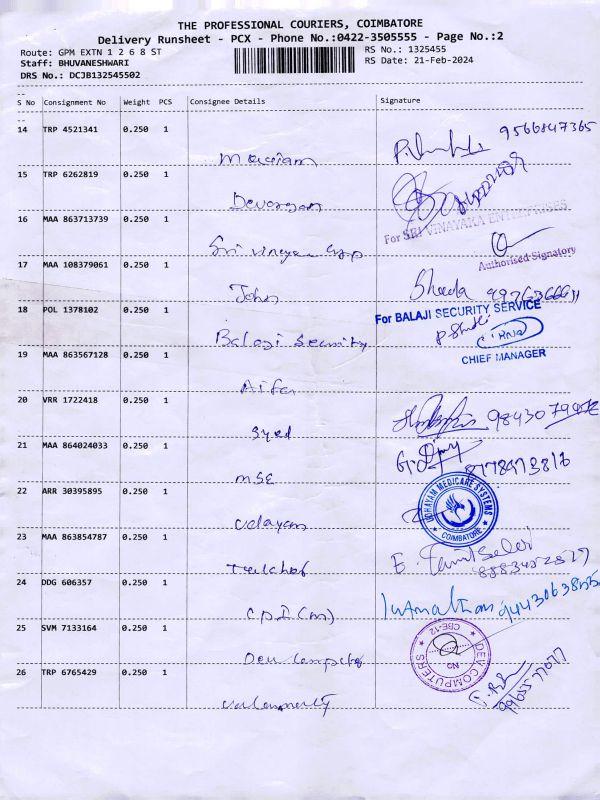 THE PROFESSIONAL COURIERS, COIMBATORE
Delivery Runsheet - PCX - Phone No.:0422-3505555 - Page No.:2
Route: GPM EXTN 1 2 6 8 ST
RS No.: 1325455
Staff: BHUVANESHWARI
RS Date: 21-Feb-2024
DRS No.: DCJB132545502
S No Consignment No Weight PCS Consignee Details Signature
14 TRP 4521341 0.250 1
9566847365
Mariam
15 TRP 6262819 0.250 1
Devarajan
16 MAA 863713739 0.250 1
For SRI VINAYAKA ENTERPRISES
Authorised Signatory
17 MAA 108379061 0.250 1
John
18 POL 1378102 0.250 1
For BALAJI SECURITY SERVICE
Balaji Security
CHIEF MANAGER
19 MAA 863567128 0.250 1
20 VRR 1722418 0.250 1
Syed
21 MAA 864024033 0.250 1
MSE
22 ARR 30395895 0.250 1
UDHAYAM MEDICARE SYSTEMS
COIMBATORE
Udayam
23 MAA 863854787 0.250 1
E. Tamil Selvi
24 DDG 606357 0.250 1
CPI (M)
25 SVM 7133164 0.250 1
DEV COMPUTERS
CBE-12
Dev Computer
26 TRP 6765429 0.250 1